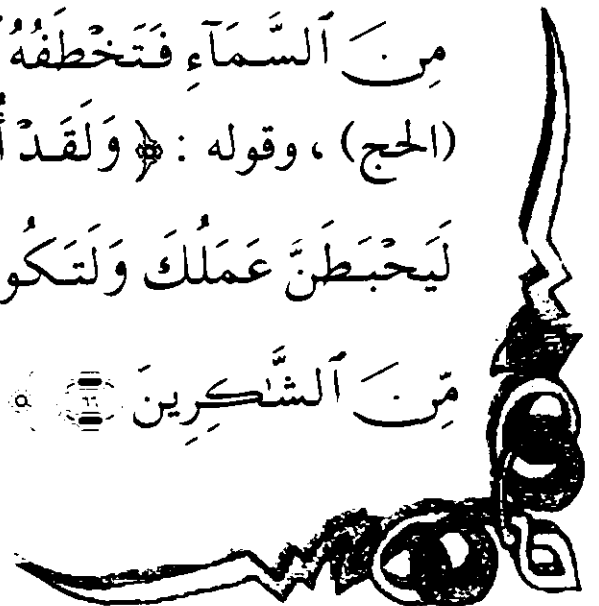 مِنَ ٱلسَّمَآءِ فَتَخْطَفُهُ
(الحج) ، وقوله : ﴿ وَلَقَدْ
لَيَحْبَطَنَّ عَمَلُكَ وَلَتَكُو
مِّنَ ٱلشَّٰكِرِينَ ٦٦